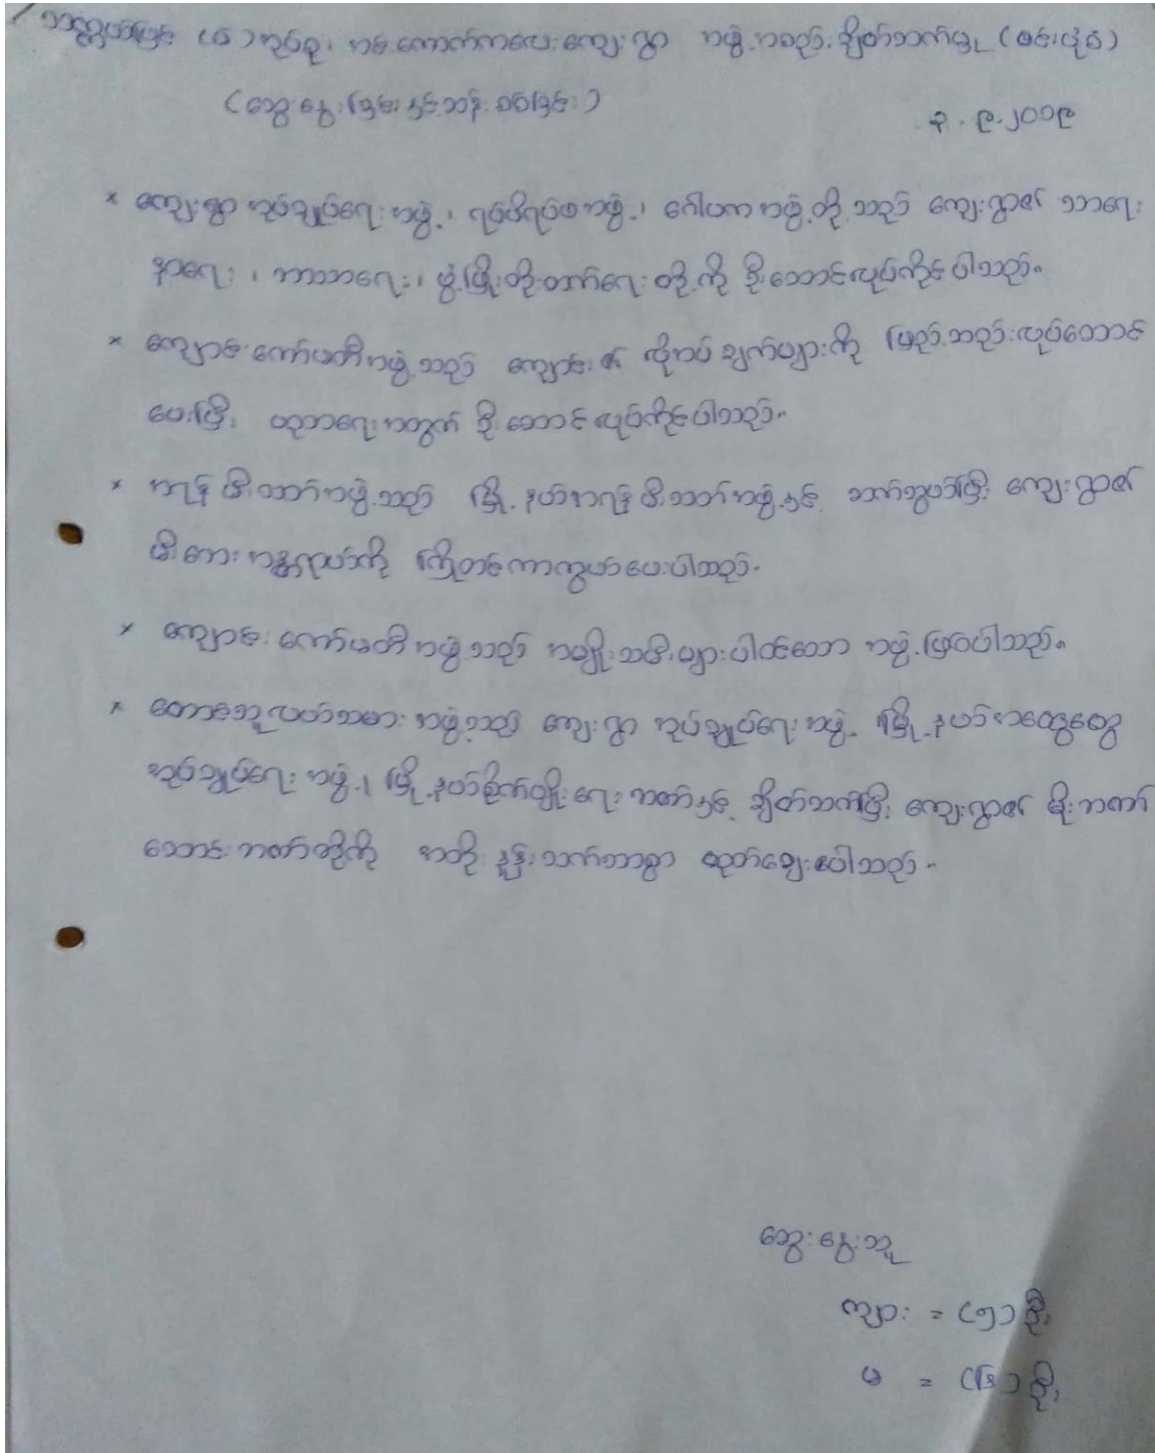 (၆) အုပ်စု၊ အင်ကောက်ကလေးကျေးရွာ အဖွဲ့အစည်းချိတ်ဆက်မှု (ဗင်းပုံစံ)
(ဆွေးနွေးခြင်းနှင့်သန့်စင်ခြင်း)
၃.၉.၂၀၁၉
× ကျေးရွာအုပ်ချုပ်ရေးအဖွဲ့၊ ရပ်မိရပ်ဖအဖွဲ့၊ ဂေါပကအဖွဲ့တို့သည် ကျေးရွာ၏ သာရေး
နာရေး၊ ဘာသာရေး၊ ဖွံ့ဖြိုးတိုးတက်ရေးတို့ကို ဦးဆောင်လုပ်ကိုင်ပါသည်။
× ကျောင်းကော်မတီအဖွဲ့သည် ကျောင်း၏ လိုအပ်ချက်များကို ဖြည့်ဆည်းလုပ်ဆောင်
ပေးပြီး ပညာရေးအတွက် ဦးဆောင်လုပ်ကိုင်ပါသည်။
× အရန်မီးသတ်အဖွဲ့သည် မြို့နယ်အရန်မီးသတ်အဖွဲ့နှင့် ဆက်သွယ်ပြီး ကျေးရွာ၏
မီးဘေးအန္တရာယ်ကို ကြိုတင်ကာကွယ်ပေးပါသည်။
× ကျောင်းကော်မတီအဖွဲ့သည် အမျိုးသမီးများပါဝင်သော အဖွဲ့ဖြစ်ပါသည်။
× တောင်သူလယ်သမားအဖွဲ့သည် ကျေးရွာအုပ်ချုပ်ရေးအဖွဲ့ မြို့နယ်အထွေထွေ
အုပ်ချုပ်ရေးအဖွဲ့၊ မြို့နယ်စိုက်ပျိုးရေးဘဏ်နှင့် ချိတ်ဆက်ပြီး ကျေးရွာ၏ မိုးဘဏ်
ဆောင်းဘဏ်တို့ကို အတိုးနှုန်းသက်သာစွာ ထုတ်ချေးပေးပါသည်။
ဆွေးနွေးသူ
ကျား = (၅) ဦး
မ = (၆) ဦး